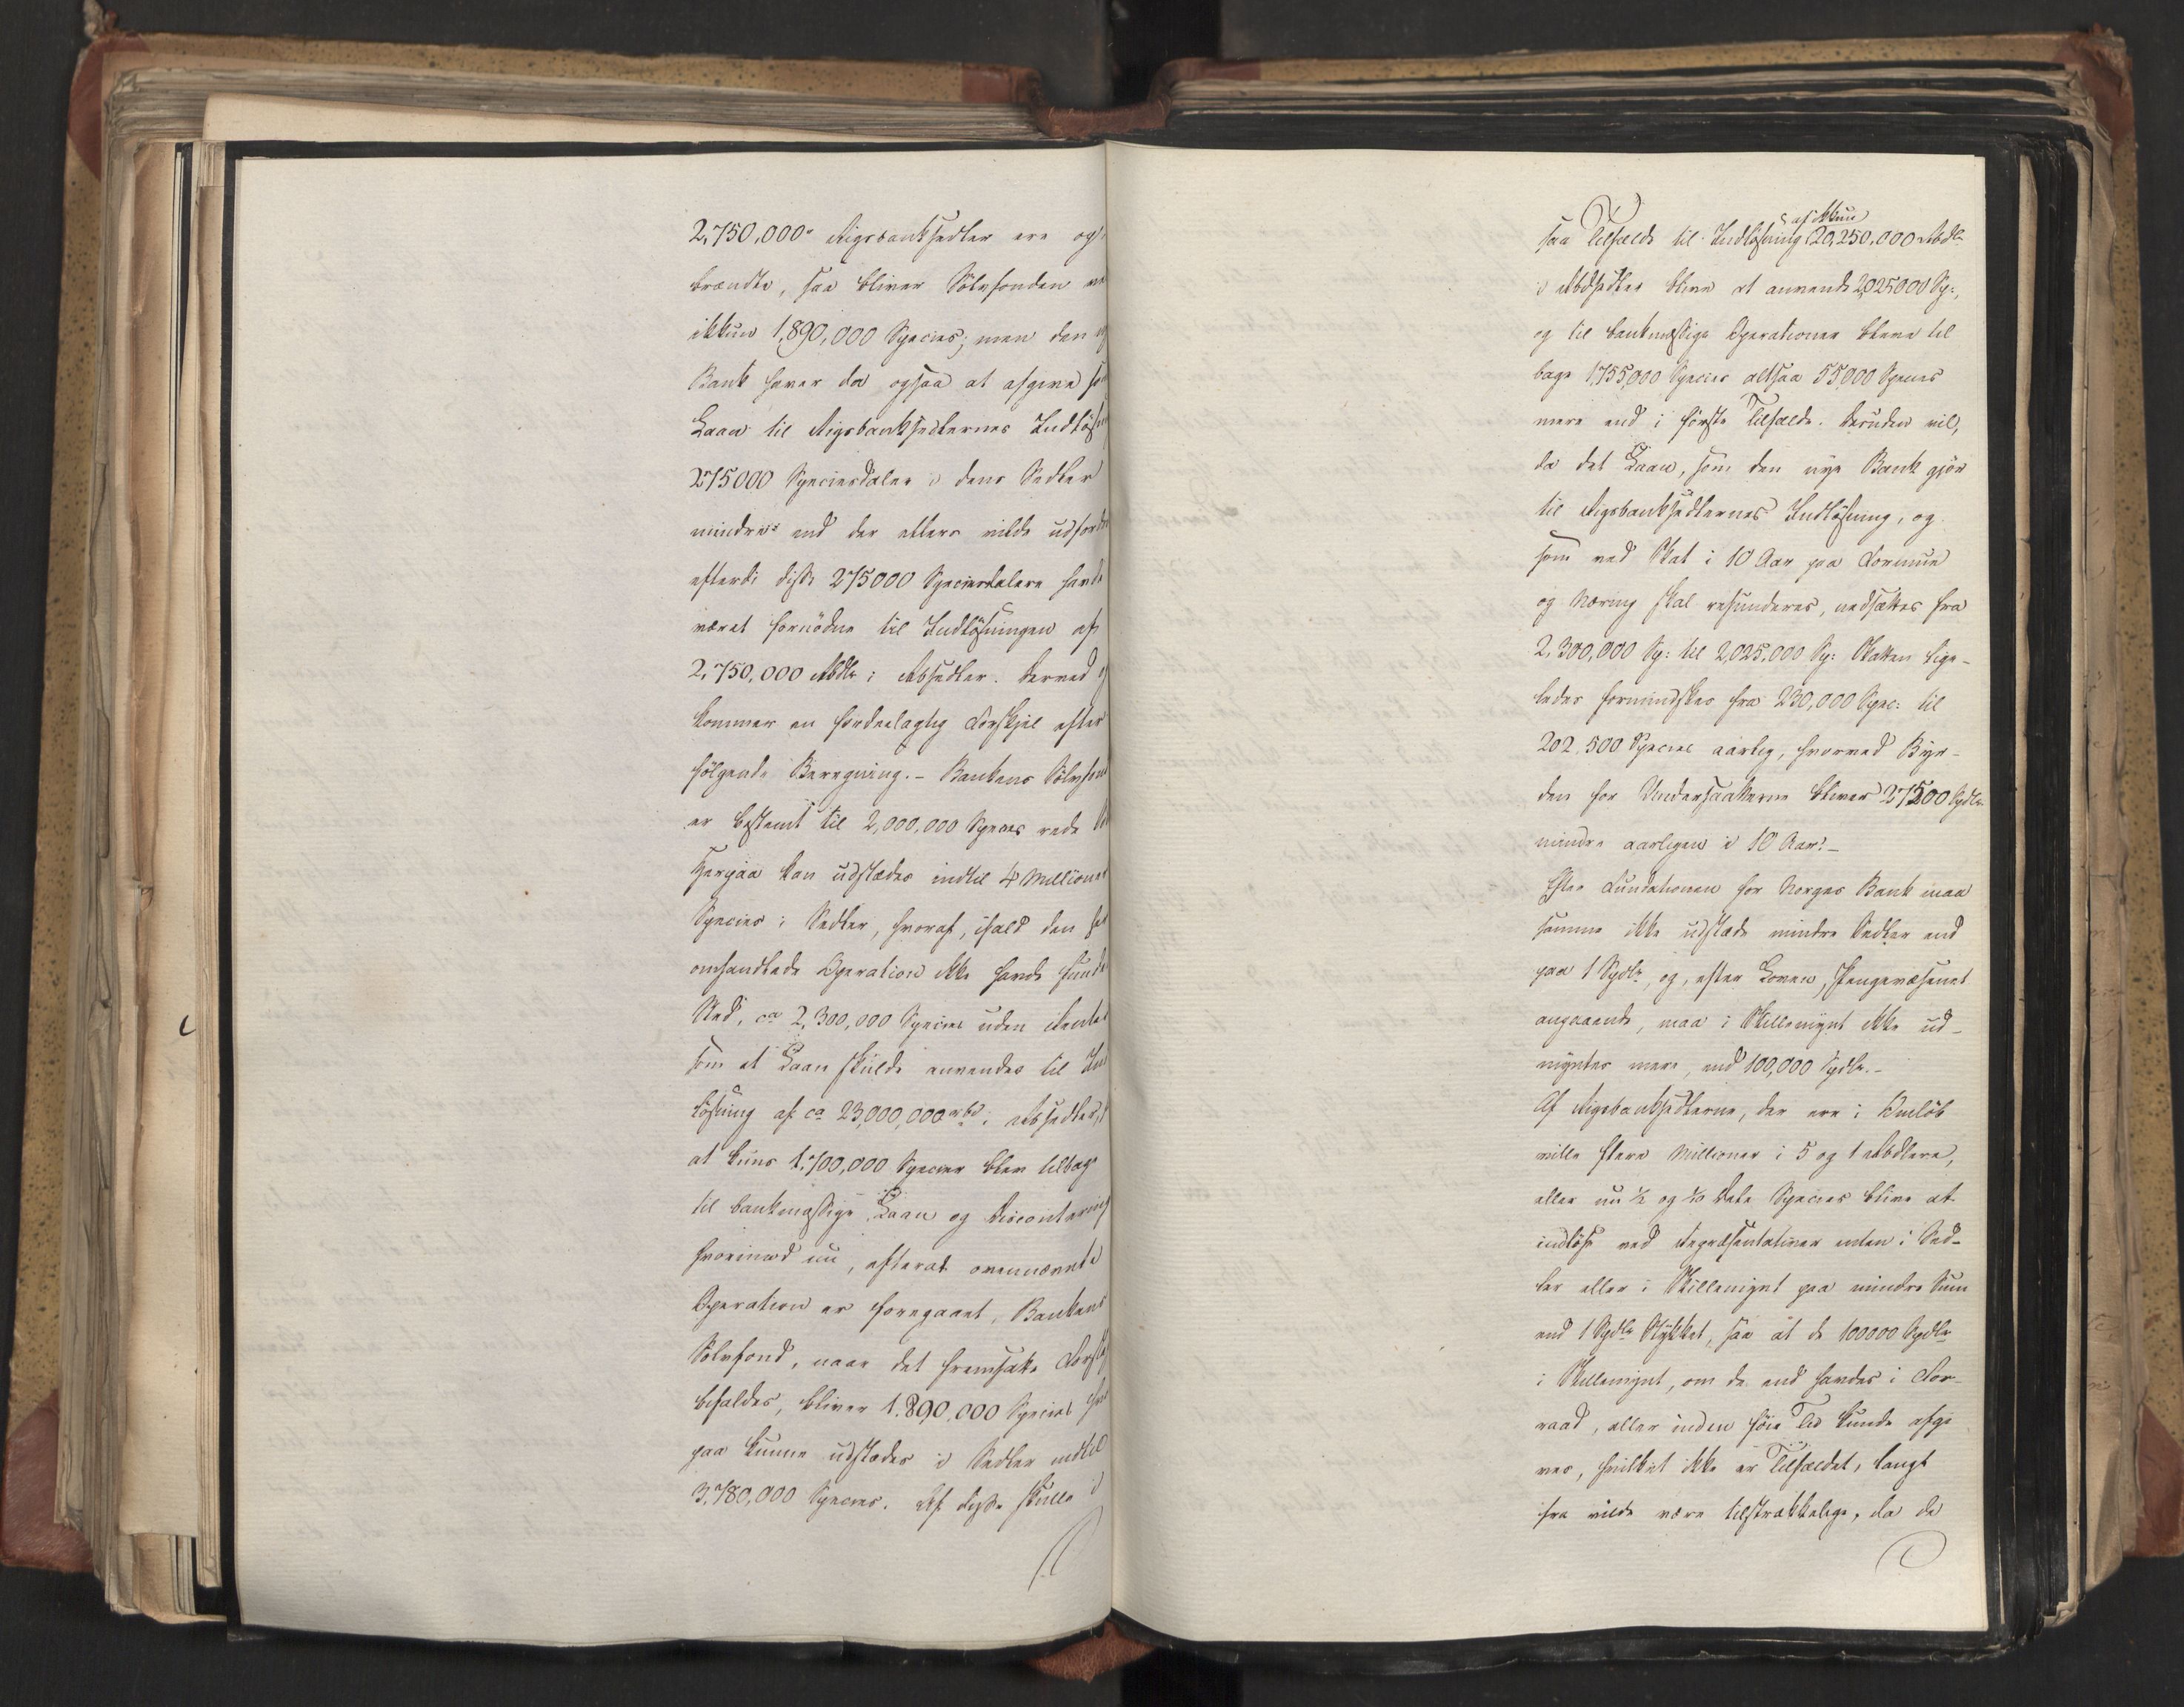 2,750,000 Rigsbanksedler ere og
brændte, saa bliver Sölvfonden
ikkun 1,890,000 Species; men den
Bank haver da ogsaa at afgive
Laan til Rigsbanksedlernes Indlös
275000 Speciesdaler i dens Sedler
mindre end der ellers vilde udfordr
efterdi disse 275000 Speciesdalere havde
været fornödne til Indlösningen af
2,750,000 Rbdlr i Rbsedler. Derved
kommer en fordeelagtig Forskjel efter
fölgende Beregning.– Bankens Sölvfond
er bestemt til 2,000,000 Species rede
Herpaa kan udstædes indtil 4 Millioner
Species i Sedler, hvoraf, ifald den
omhandlede Operation ikke havde funde
Sted, ca 2,300,000 Species uden Renter
som et Laan skulde anvendes til Ind
lösning af ca 23,000,000 rbd. i Rbsedler,
at kuns 1,700,000 Species blev tilbage
til bankmæssige Laan og Discontering
hvorimod nu, efterat ovennævnte
Operation er foregaaet, Bankens
Sölvfond, naar det fremsatte Forsl
bifaldes, bliver 1.890,000 Species
paa kunne udstædes i Sedler indtil
3,780,000 Species. Af disse skulle i
saa Tilfælde til Indlösning af ikkun 20,250,000 Rbdlr
i Rbdsedler blive at anvende 2,025000 Sp:,
og til bankmæssige Operationer bleve til
bage 1,755,000 Species altsaa 55,000 Species
mere end i förste Tilfælde. Desuden vil,
da det Laan, som den nye Bank gjör
til Rigsbanksedlernes Indlösning, og
som ved Skat i 10 Aar paa Formue
og Næring skal refunderes, nedsættes fra
2,300,000 Sp: til 2,025,000 Sp: Skatten lige-
ledes formindskes fra 230,000 Spec: til
202,500 Species aarlig, hvorved Byr-
den for Undersaatterne bliver 27500 Spdlr
mindre aarligen i 10 Aar.–
Efter Fundationen for Norges Bank maa
samme ikke udstæde mindre Sedler end
paa 1 Spdlr, og, efter Loven, Pengevæsenet
angaaende, maa i Skillemynt ikke ud-
myntes mere, end 100,000 Spdlr.–
Af Rigsbanksedlerne, der ere i Omlöb
ville flere Millioner i 5 og 1 Rbdlere,
eller nu ½ og 1/10 Dele Species blive at
indlöse med Repræsentativer enten i Sed-
ler eller i Skillemynt paa mindre Sum
end 1 Spdlr Stykket, saa at de 100000 Spdlr
i Skillemynt, om de end havdes i For-
raad, eller inden föie Tid kunde afgi
ves, hvilket ikke er Tilfældet, langt
fra vilde være tilstrækkelige, da de